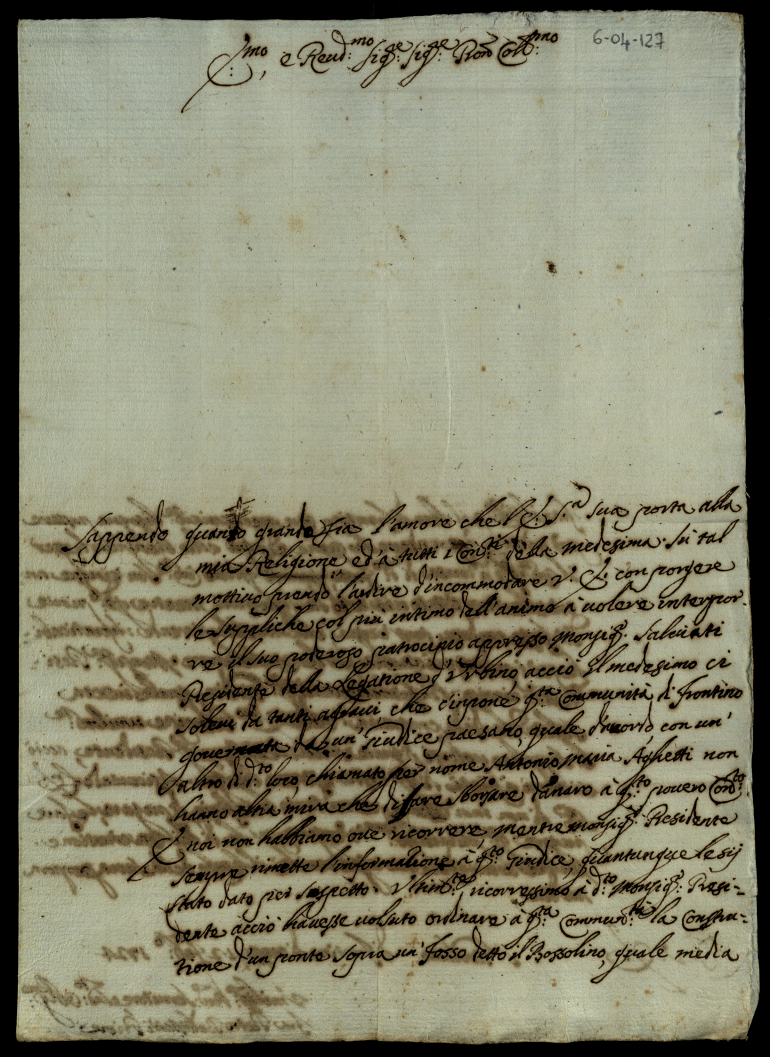 6-04-127
Ecc:mo, e Reud:mo Sig:re Sig:re Pron Coll:mo
Sappendo quanto grande sia l'amore che l'E. S.a sua porta alla
mia Religione, ed à tutti i Con:ti della medesima. Sù tal
mottiuo prendo l'ardire d'incommodare V. E. con porgere
le suppliche col più intimo dell'animo à uolere interpor-
re il suo poderoso patrocinio appresso Monsig:r Saluiati
Residente della Legatione d'Vrbino, acciò il medesimo ci
solleui da tanti aggraui che c'inpone q:ta Communità di Frontino
gouernata da un' Giudice paesano, quale d'accordo con un'
altro di d:to loco, chiamato per nome Antonio Maria Aghetti non
hanno altra mira che di fare sborsare danaro à q:to pouero Con:to
E noi non habbiamo oue ricorrere, mentre Monsig:r Residente
sempre rimette l'informatione à q:to Giudice, quantunque le sij
stato dato per sospetto. Vltim:te ricorressimo à d:to Monsig:r Presi-
dente acciò hauesse uoluto ordinare à q:ta Commun:tà la Constru-
tione d'un ponte sopra un' Fosso detto il Bossolino, quale media